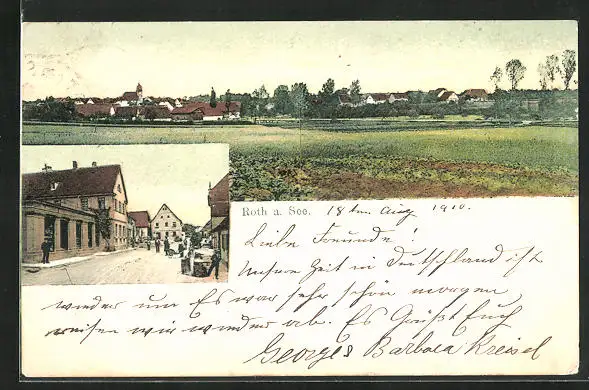 Roth a. See. 18 tn. Aug 1910.
Liebe Freunde!
Unsere Zeit in deutschland ist
wieder um Es war sehr schön morgen
reisen wir wieder ab. Es Grüßt Euch
Georges Barbara Kreisel